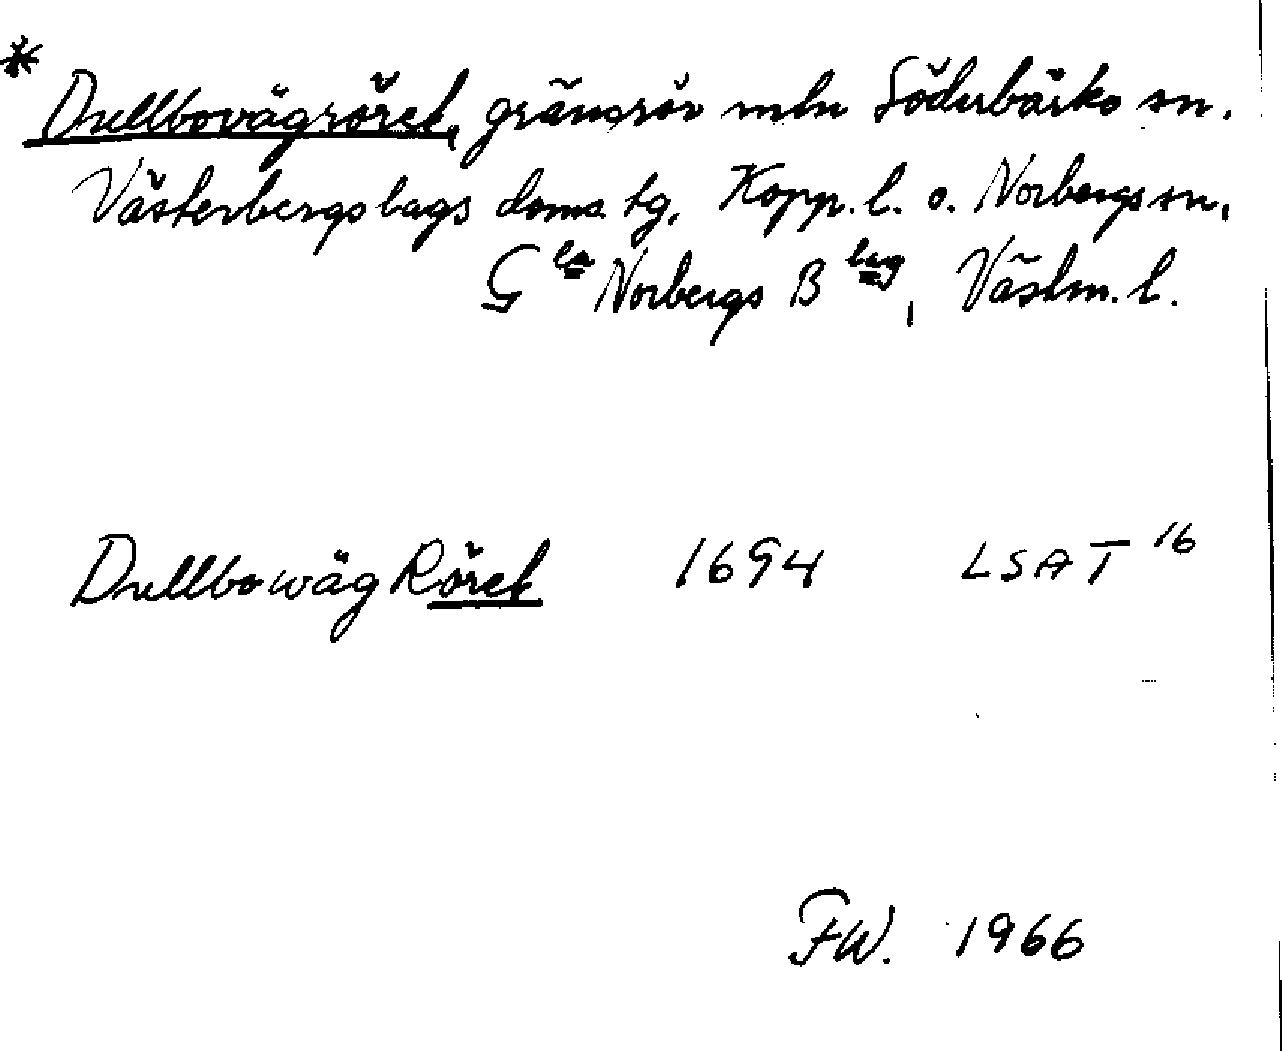 * Dullbovägröret, gränsrör mln Söderbärke sn.
Västerbergslags doms. tg. Kopp. l. o. Norbergs sn.
Gla Norbergs Blag, Västm. l.
Dullbowäg Röret 1694 LSA T 16
FW. 1966